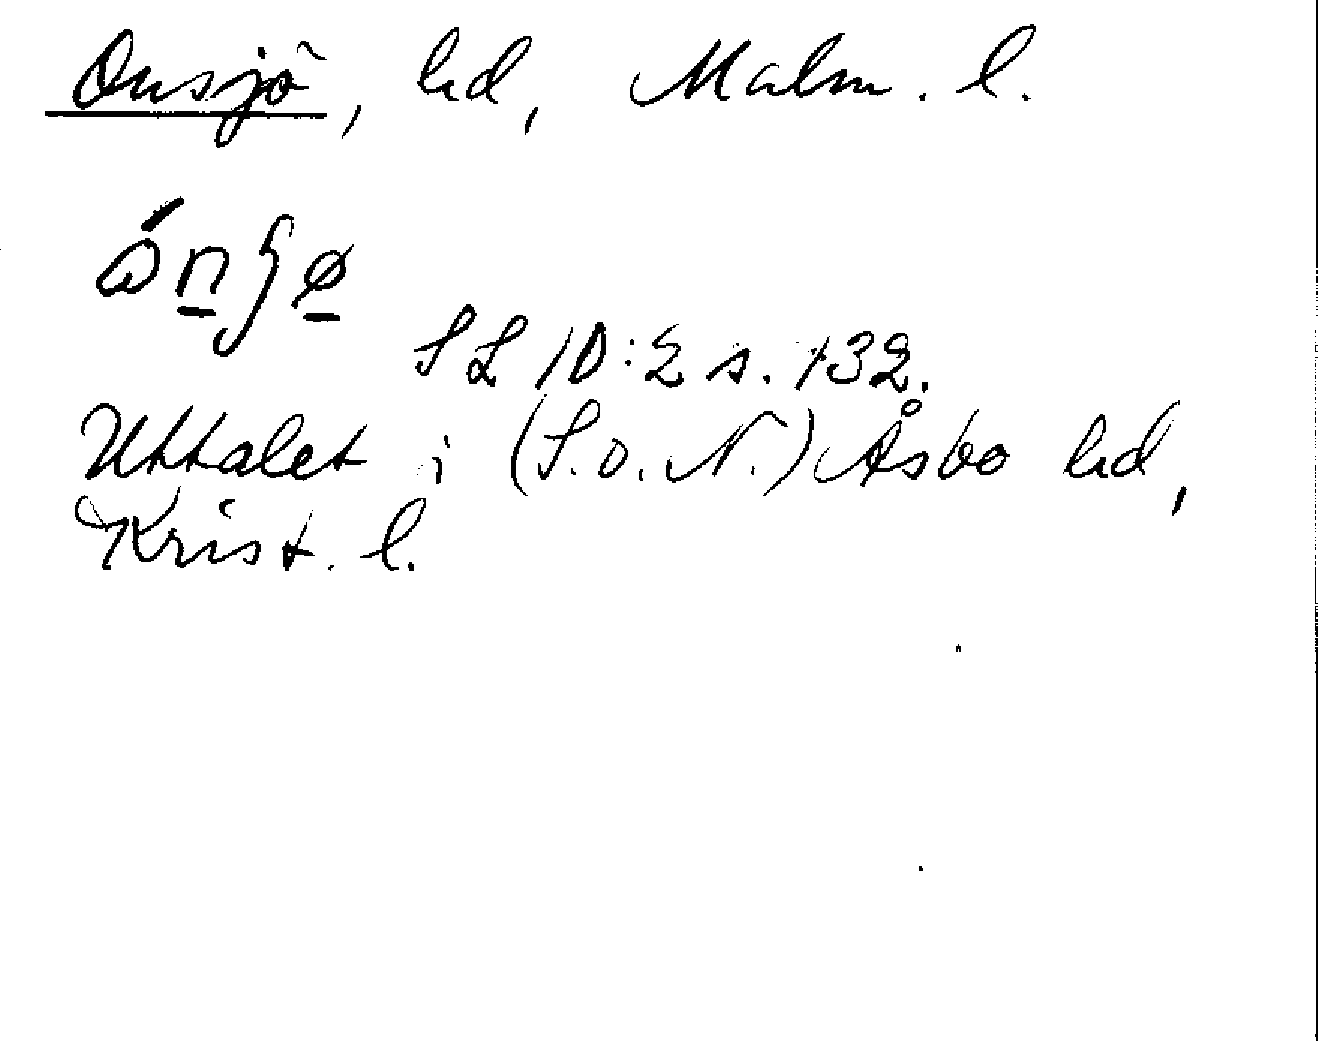 Onsjö, hd, Malm. l.
ȯ́n̲ʃø̲
SL 10:2 s. 132.
Uttalet i (S.o.N.) Åsbo hd,
Krist. l.